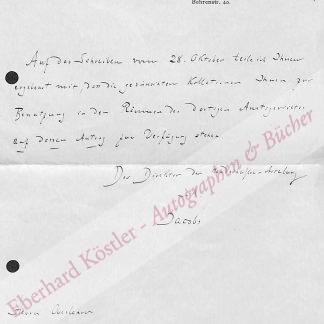 Behrenstr. 40.
Auf das Schreiben vom 28. Oktober teile ich Ihnen
ergebenst mit, dass die gewünschten Kollationen Ihnen zur
Benutzung in den Räumen des dortigen Amtsgerichtes
auf dessen Antrag zur Verfügung stehen.
Der Direktor der
Jacobs
Herrn
Eberhard Köstler - Autographen & Bücher